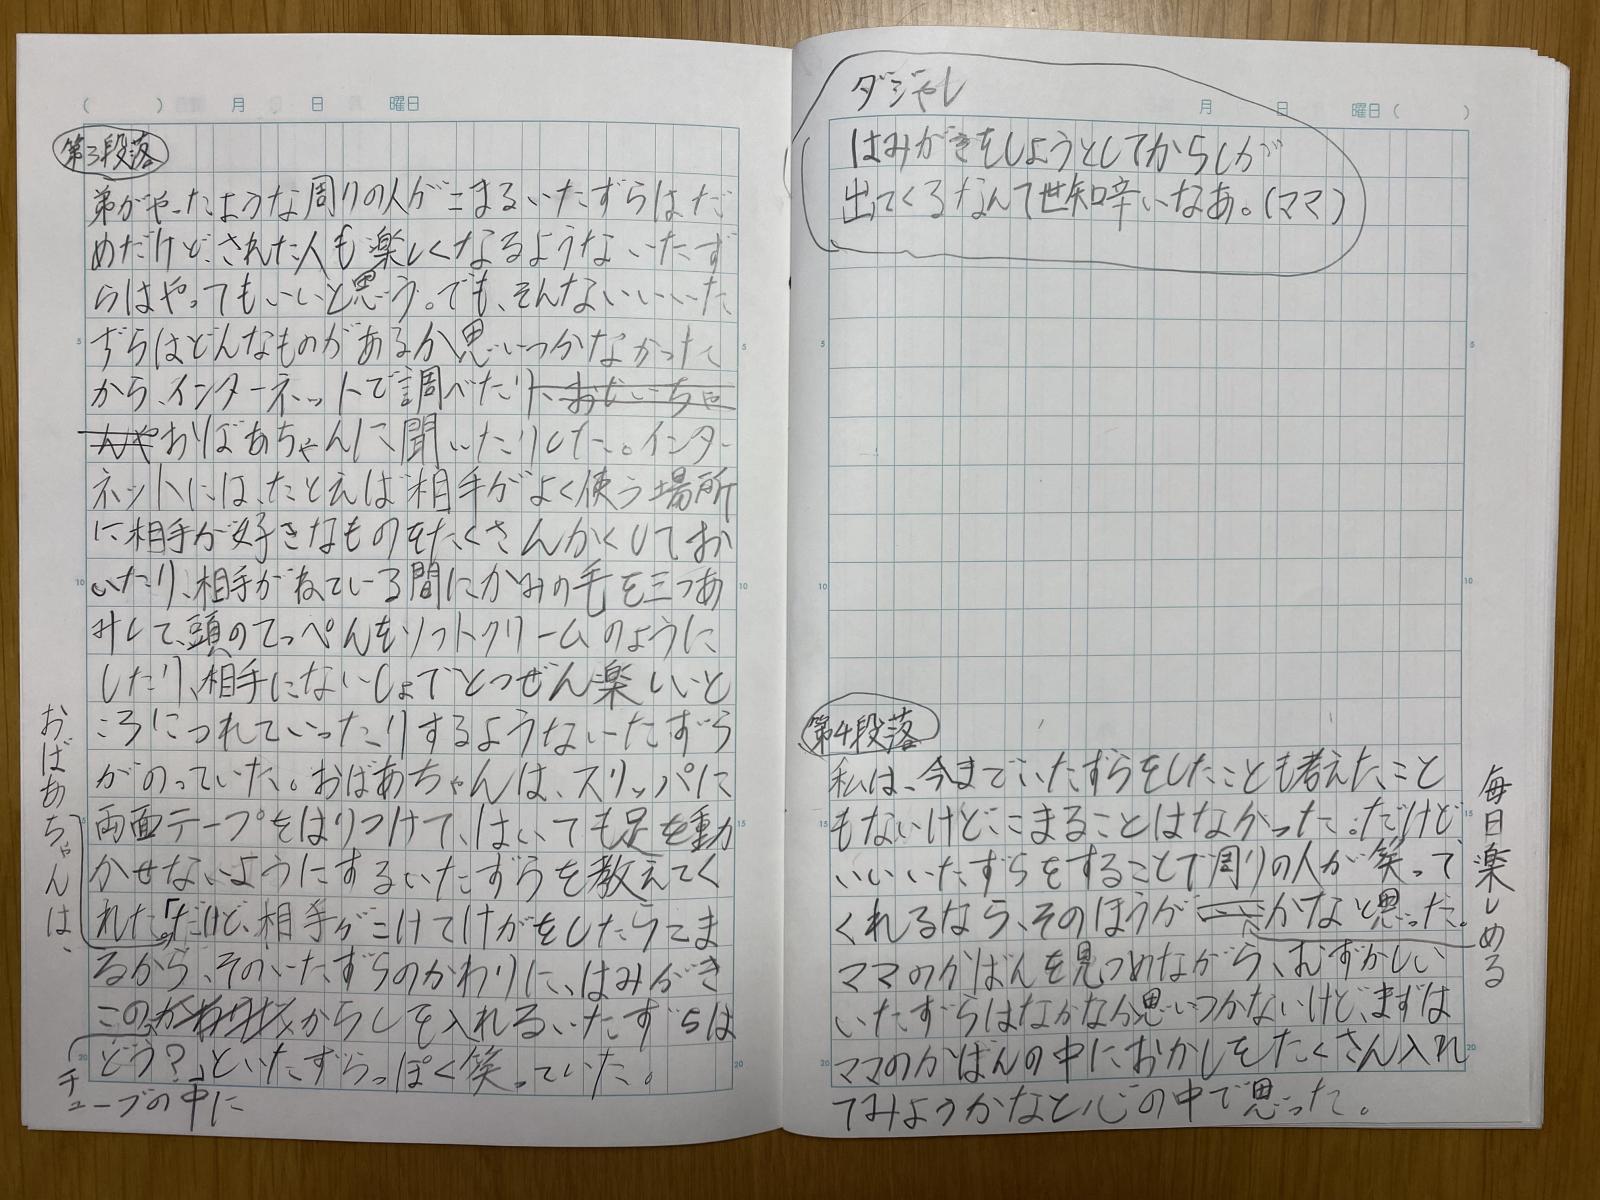 ( ) 月 日 曜日
第3段落
弟がやったような周りの人がこまるいたずらはだ
めだけど、された人も楽しくなるようないたず
らはやってもいいと思う。でも、そんないいいた
ずらはどんなものがあるか思いつかなかった
から、インターネットで調べたり、おじいちゃ
んやおばあちゃんに聞いたりした。インター
ネットには、たとえば相手がよく使う場所
に相手が好きなものをたくさんかくしてお
いたり、相手がねている間にかみの毛を三つあ
みして、頭のてっぺんをソフトクリームのように
したり、相手にないしょでとつぜん楽しいと
ころにつれていったりするようないたずら
がのっていた。おばあちゃんは、スリッパに
両面テープをはりつけて、はいても足を動
かせないようにするいたずらを教えてく
れた。「だけど、相手がこけてけがをしたらこま
るから、そのいたずらのかわりに、はみがき
このからしを入れるいたずらは
どう?」といたずらっぽく笑っていた。
チューブの中に
おばあちゃんは、
5
10
15
20
5
10
15
20
ダジャレ
月 日 曜日 ( )
はみがきをしようとしてからしが
出てくるなんて世知辛いなあ。(ママ)
第4段落
私は、今までいたずらをしたことも考えたこと
もないけどこまることはなかった。だけど、
いいいたずらをすることで周りの人が笑って
くれるなら、そのほうがかなと思った。
ママのかばんを見つめながら、むずかしい
いたずらはなかなか思いつかないけど、まずは
ママのかばんの中におかしをたくさん入れ
てみようかなと心の中で思った。
毎日楽しめる
5
10
15
20
5
10
15
20